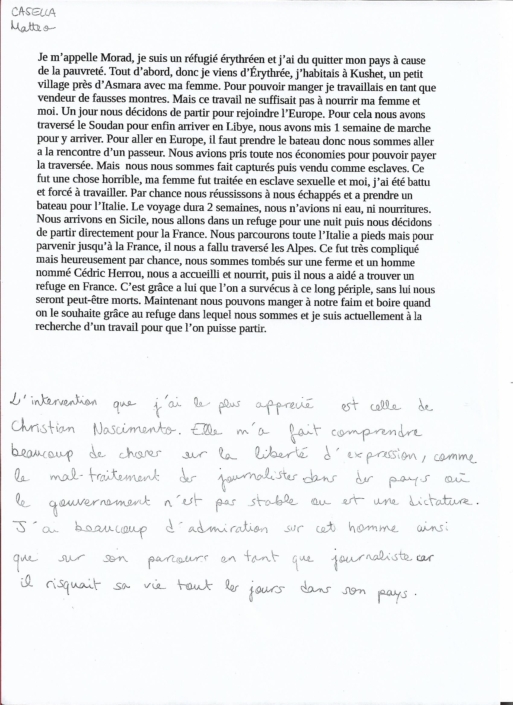 CASELLA
Matteo
Je m'appelle Morad, je suis un réfugié érythréen et j'ai du quitter mon pays à cause
de la pauvreté. Tout d'abord, donc je viens d'Érythrée, j'habitais à Kushet, un petit
village près d'Asmara avec ma femme. Pour pouvoir manger je travaillais en tant que
vendeur de fausses montres. Mais ce travail ne suffisait pas à nourrir ma femme et
moi. Un jour nous décidons de partir pour rejoindre l'Europe. Pour cela nous avons
traversé le Soudan pour enfin arriver en Libye, nous avons mis 1 semaine de marche
pour y arriver. Pour aller en Europe, il faut prendre le bateau donc nous sommes aller
a la rencontre d'un passeur. Nous avions pris toute nos économies pour pouvoir payer
la traversée. Mais nous nous sommes fait capturés puis vendu comme esclaves. Ce
fut une chose horrible, ma femme fut traitée en esclave sexuelle et moi, j'ai été battu
et forcé à travailler. Par chance nous réussissons à nous échappés et a prendre un
bateau pour l'Italie. Le voyage dura 2 semaines, nous n'avions ni eau, ni nourritures.
Nous arrivons en Sicile, nous allons dans un refuge pour une nuit puis nous décidons
de partir directement pour la France. Nous parcourons toute l'Italie a pieds mais pour
parvenir jusqu'à la France, il nous a fallu traversé les Alpes. Ce fut très compliqué
mais heureusement par chance, nous sommes tombés sur une ferme et un homme
nommé Cédric Herrou, nous a accueilli et nourrit, puis il nous a aidé a trouver un
refuge en France. C'est grâce a lui que l'on a survécus à ce long périple, sans lui nous
seront peut-être morts. Maintenant nous pouvons manger à notre faim et boire quand
on le souhaite grâce au refuge dans lequel nous sommes et je suis actuellement à la
recherche d'un travail pour que l'on puisse partir.
L'intervention que j'ai le plus apprecié est celle de
Christian Nascimento. Elle m'a fait comprendre
beaucoup de choses sur la liberté d'expression, comme
le mal-traitement des journalistes dans des pays où
le gouvernement n'est pas stable ou est une dictature.
J'ai beaucoup d'admiration sur cet homme ainsi
que sur son parcours en tant que journaliste car
il risquait sa vie tout les jours dans son pays.